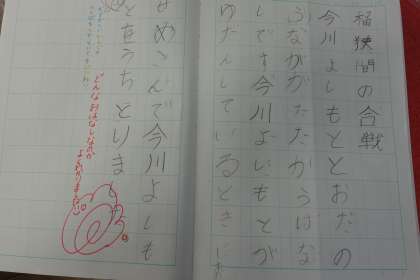 稲狭間の合戦
今川よしもととおだの
うながたたかうはな
しです今川よしもとが
ゆだんしているときに
なめこんで今川よしも
とをうちとりま
どんなおはなしなのか
よくわかりました